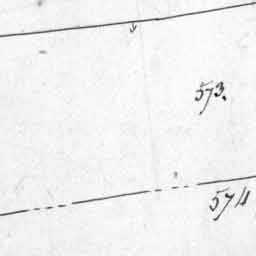 573.
574